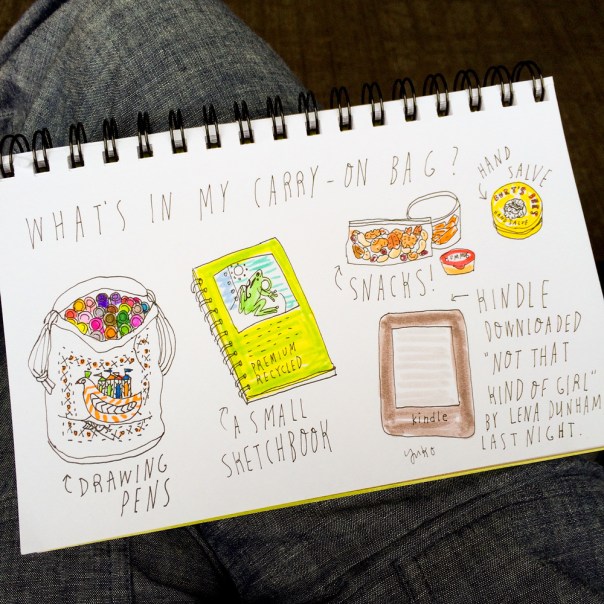 WHAT'S IN MY CARRY-ON BAG?
HAND
SALVE
BURT'S BEES
HAND SALVE
SNACKS!
PREMIUM
RECYCLED
A SMALL
SKETCHBOOK
DRAWING
PENS
kindle
KINDLE
DOWNLOADED
"NOT THAT
KIND OF GIRL"
BY LENA DUNHAM
LAST NIGHT.
yuko